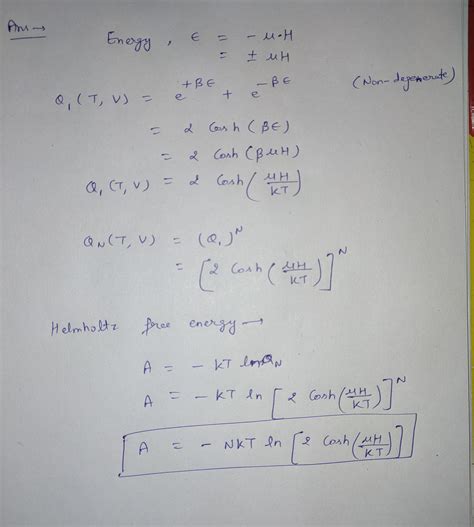 Ans →
Energy, ε = - μ·H
= ± μH
Q₁(T, V) = e^{+βε} + e^{-βε} (Non-degenerate)
= 2 Cosh (βε)
= 2 Cosh (βμH)
Q₁(T, V) = 2 Cosh (μH/KT)
Q_N(T, V) = (Q₁)^N
= [2 Cosh (μH/KT)]^N
Helmholtz free energy →
A = - KT ln Q_N
A = - KT ln [2 Cosh (μH/KT)]^N
A = - NKT ln [2 Cosh (μH/KT)]